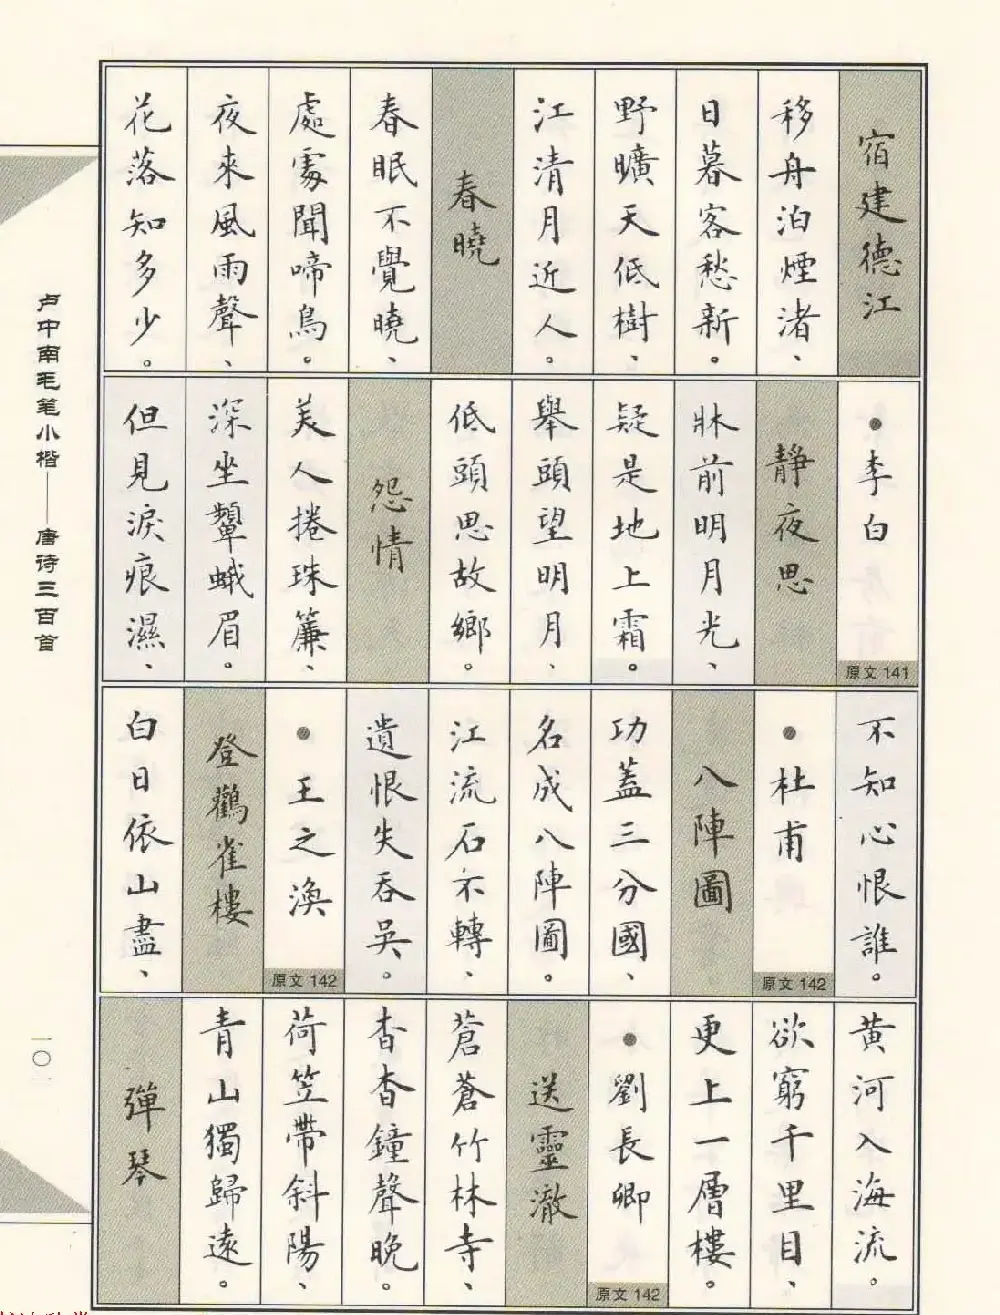 宿建德江
移舟泊煙渚、
日暮客愁新。
野曠天低樹、
江清月近人。
春曉
春眠不覺曉、
處處聞啼鳥。
夜來風雨聲、
花落知多少。
●李白
原文 141
靜夜思
牀前明月光、
疑是地上霜。
舉頭望明月、
低頭思故鄉。
怨情
美人捲珠簾、
深坐顰蛾眉。
但見淚痕濕、
不知心恨誰。
●杜甫
原文 142
八陣圖
功蓋三分國、
名成八陣圖。
江流石不轉、
遺恨失吞吳。
●王之渙
原文 142
登鸛雀樓
白日依山盡、
黄河入海流。
欲窮千里目、
更上一層樓。
●劉長卿
原文 142
送靈澈
蒼蒼竹林寺、
杳杳鐘聲晚。
荷笠帶斜陽、
青山獨歸遠。
彈琴
卢中南毛笔小楷——唐诗三百首